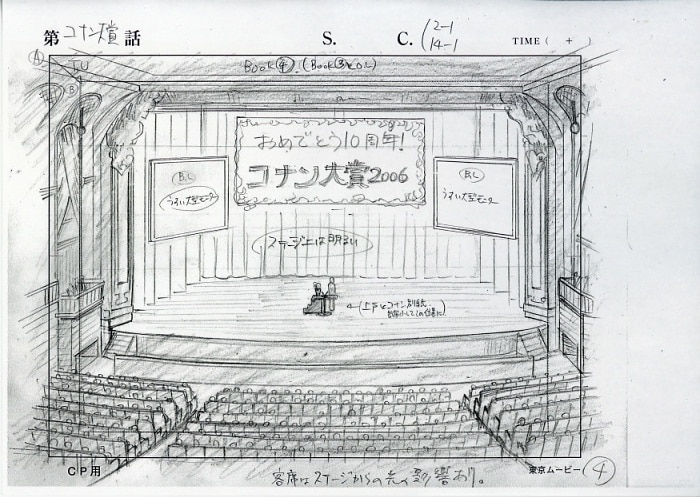 第コナン大賞話 S. C. (2-1
14-1
TIME ( + )
A T.U Book④. (Book③セル)
B
おめでとう10周年!
コナン大賞2006
B.L
うすい大型モニター
B.L
うすい大型モニター
ステージ上は明るい
CP用
客席はステージからの光の影響あり。
東京ムービー ④